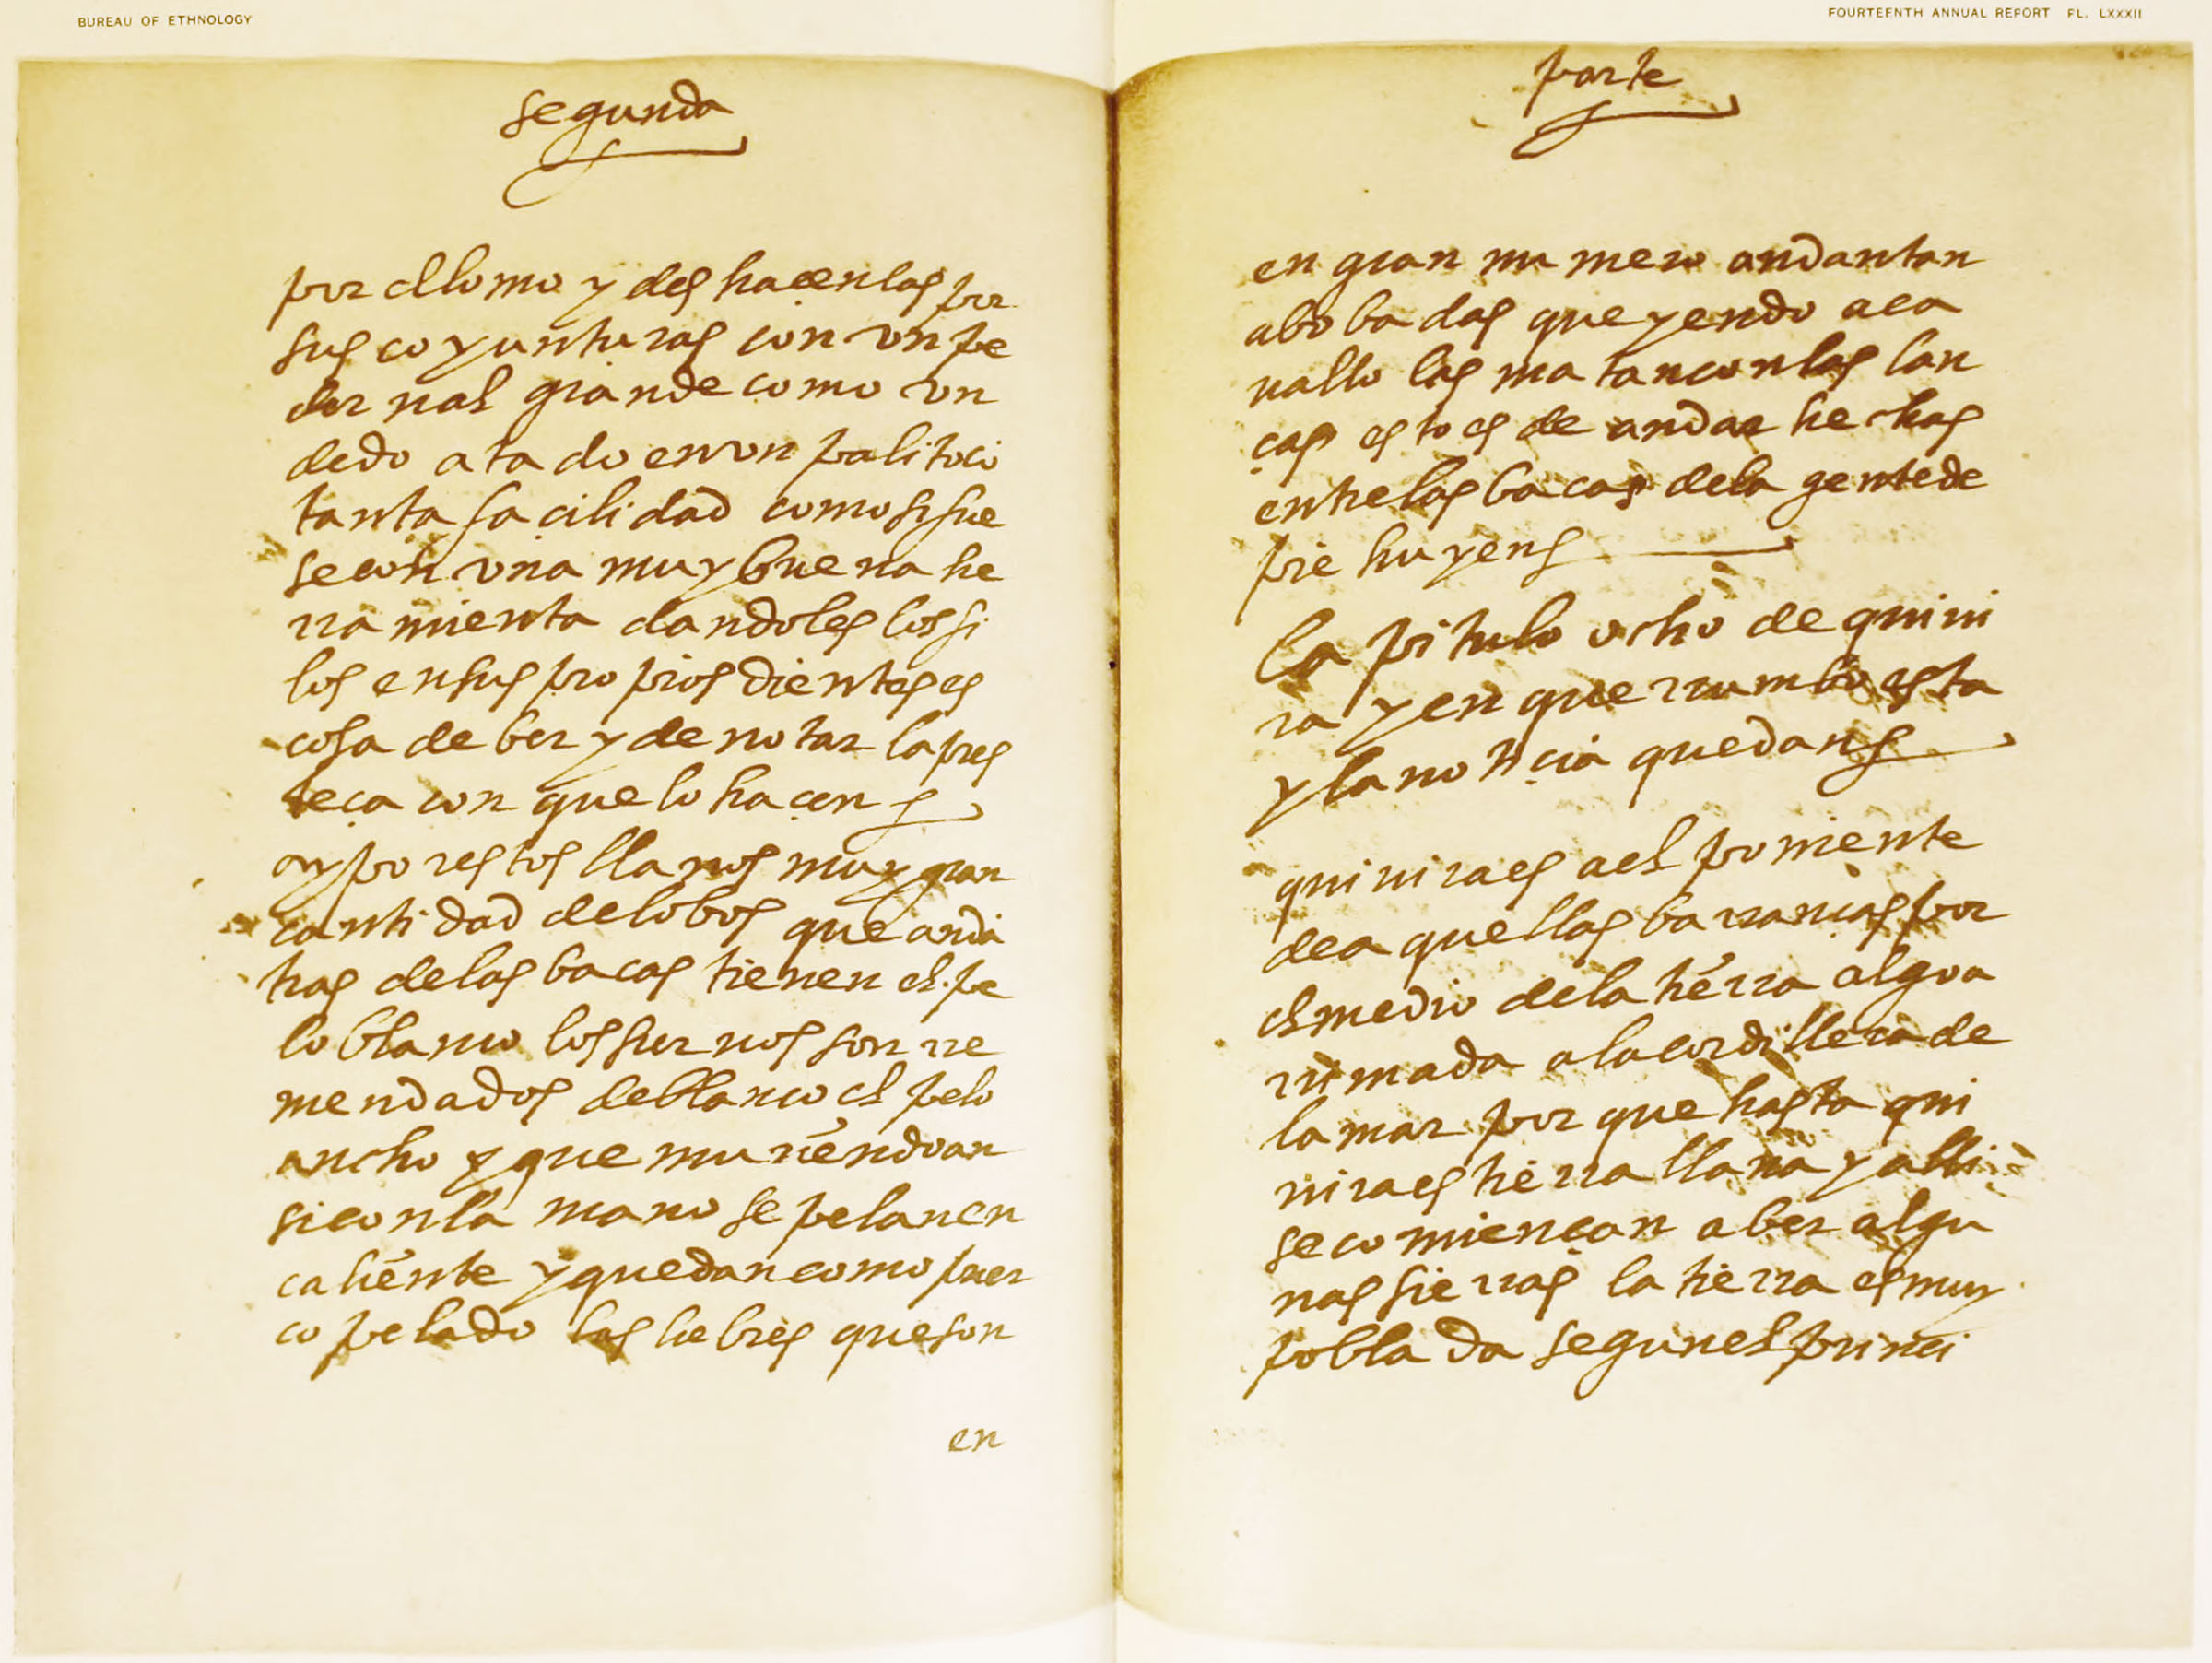 BUREAU OF ETHNOLOGY
segunda
por el lomo y deshaçenlas por
sus coyunturas con un pe
der nal grande como un
dedo atado en un palito co
tanta façilidad como si fue
se con una muy buena he
rramienta dandoles los fi
los en sus propios dientes es
cosa de ber y de notar la pres
teça con que lo haçen
ay por estos llanos muy gran
cantidad de lobos que anda
tras de las bacas tienen el pe
lo blanco los sier uos son rre
mendados de blanco el pelo
ancho y que muriendo an
si con la mano se pelan en
caliente y quedan como puer
co pelado las liebres que son
en
FOURTEENTH ANNUAL REPORT PL. LXXXII
parte
en gran numero andan tan
abobadas que yendo a ca
uallo las matan con las lan
ças esto es de andar hechas
entre las bacas de la gente de
pie huyen
Capitulo ocho de quiui
ra y en que rrumbo esta
y la notiçia que dan
quiuira es a el poniente
de aquellas barrancas por
el medio de la tierra algo a
rrimada a la cordillera de
la mar por que hasta qui
uira es tierra llana y alli
se comiençan a ber algu
nas sierras la tierra es muy
poblada segun el prinçi